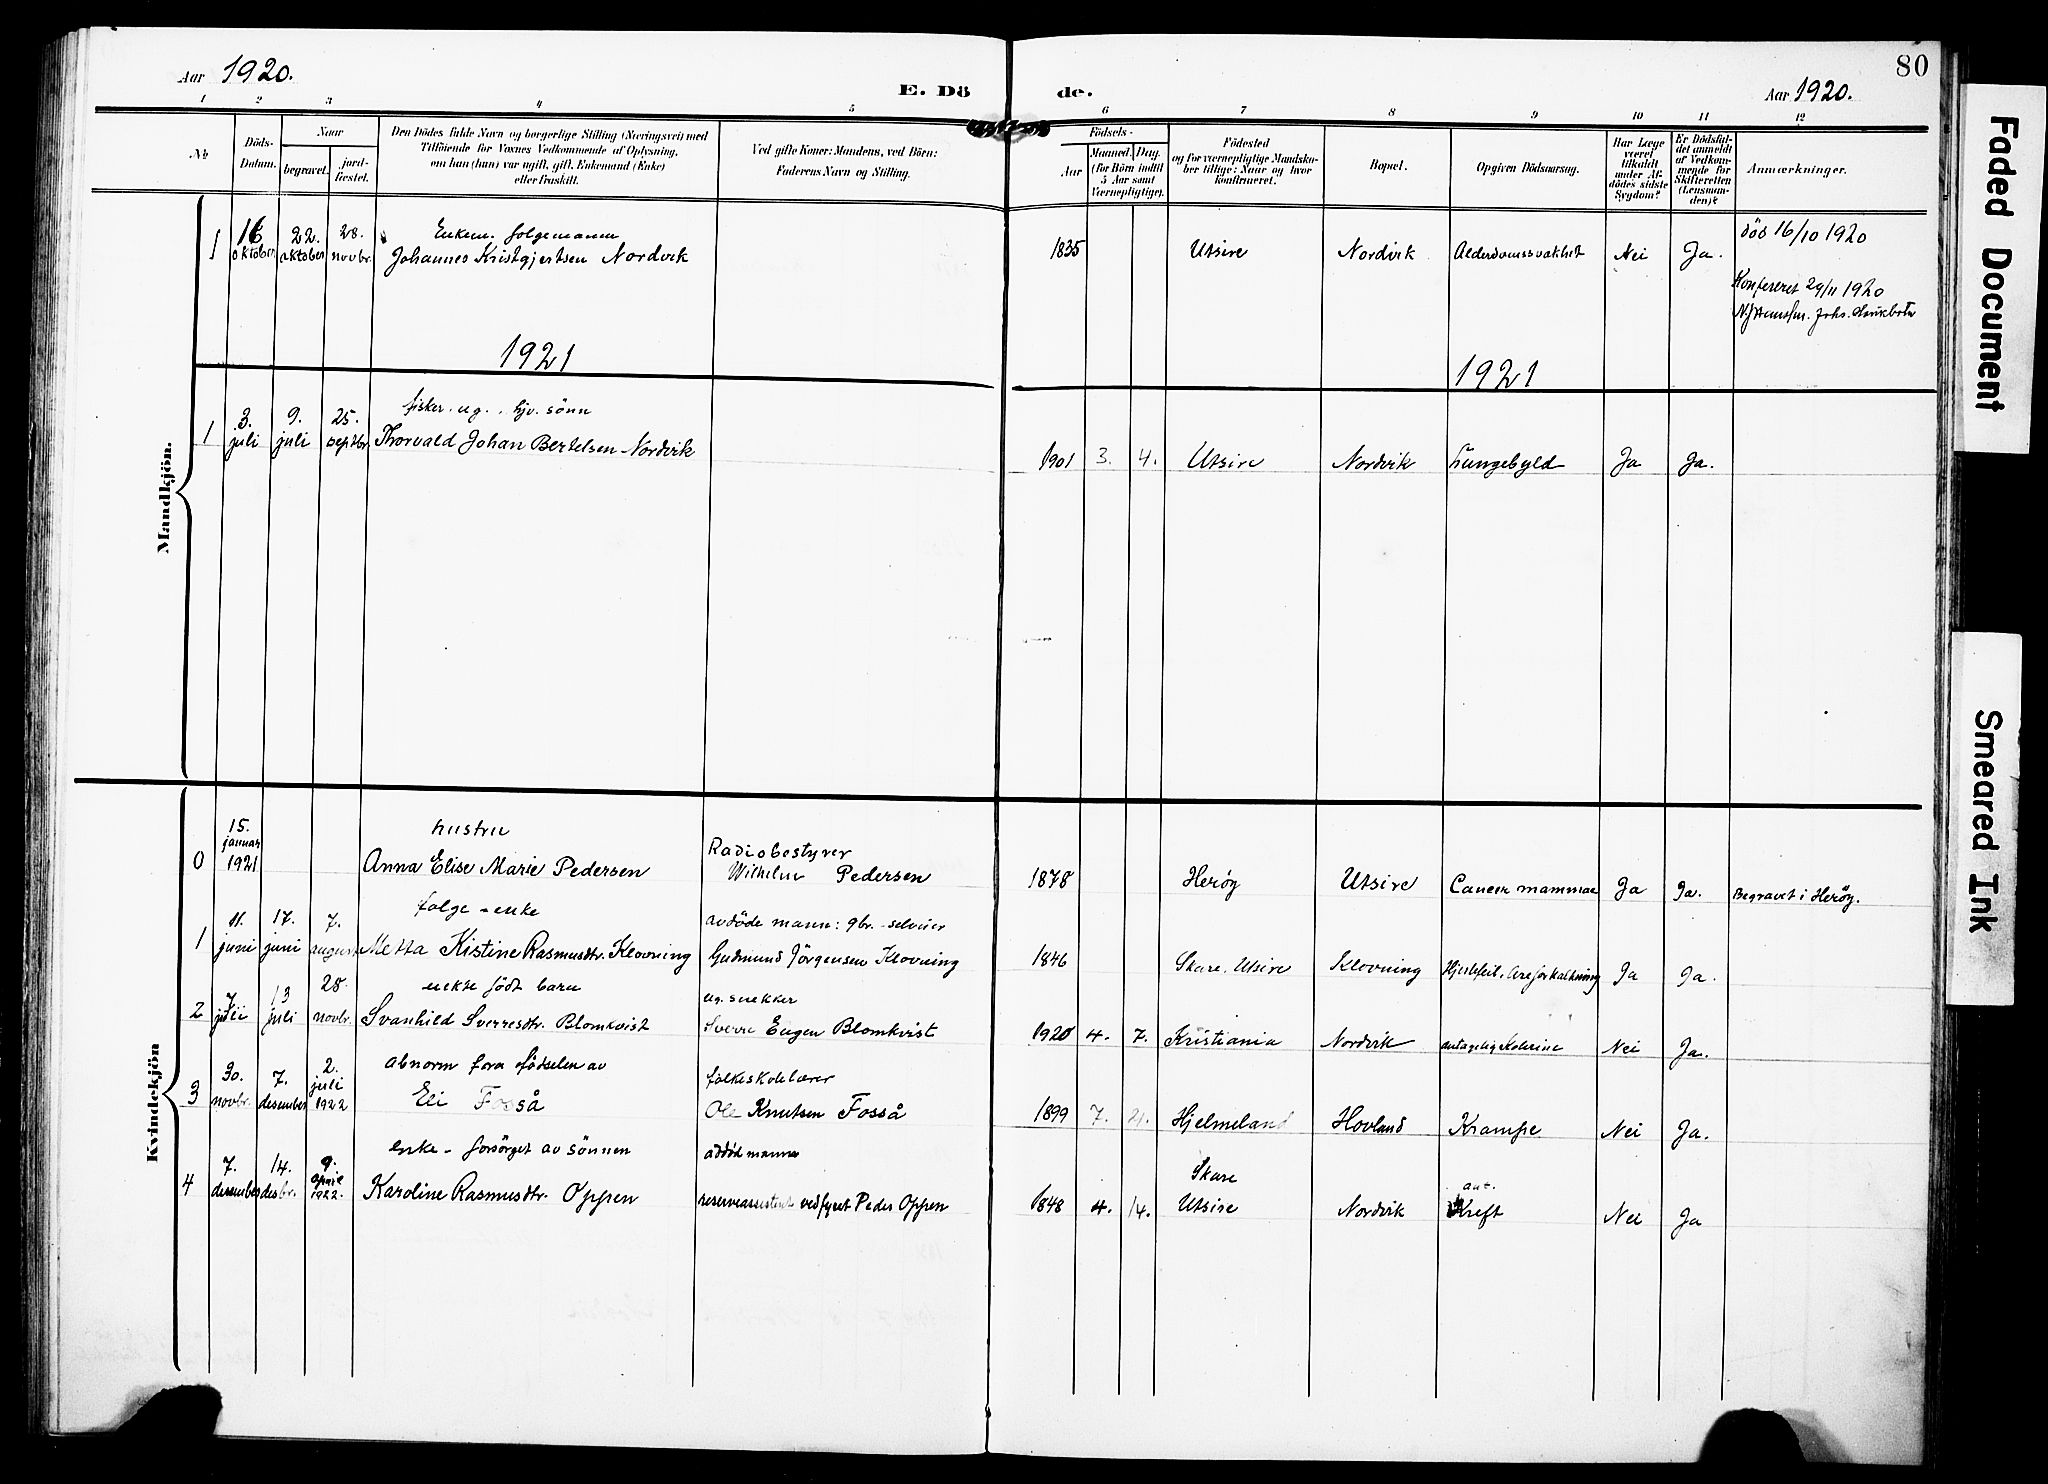 80
Aar 1920.
E. Dö
de.
Aar 1920.
1 2 3 4 5 6 7 8 9 10 11 12
No
Döds-
Datum.
Naar
begravet.
jord-
fæstet.
Den Dödes fulde Navn og borgerlige Stilling (Næringsvei) med
Tilföiende for Voxnes Vedkommende af Oplysning,
om han (hun) var ugift, gift, Enkemand (Enke)
eller fraskilt.
Ved gifte Koner: Mandens, ved Börn:
Faderens Navn og Stilling.
Födsels-
Aar
Maaned. Dag.
(for Börn indtil
5 Aar samt
Værnepligtige).
Födested
og for værnepligtige Mandska-
ber tillige: Naar og hvor
konfirmeret.
Bopæl.
Opgiven Dödsaarsag.
Har Læge
været
tilkaldt
under Af-
dödes sidste
Sygdom?
Er Dödsfal-
det anmeldt
af Vedkom-
mende for
Skifteretten
(Lensman-
den)?
Anmærkninger.
Mandkjön.
1 16 oktober 22. oktober 28. novbr.
Enkem. folgemann
Johannes Kristgjertsen Nordvik
1835 Utsire Nordvik Alderdomssvakhet Nei Ja.
död 16/10 1920
Konfereret 29/11 1920
1921
1921
1 3. juli 9. juli 25. septbr
fisker. ug. hjv. sönn
Thorvald Johan Bertelsen Nordvik
1901 3. 4. Utsire Nordvik Lungebyld Ja Ja.
Kvindekjön
0 15. januar 1921
hustru
Anna Elise Marie Pedersen
Radiobestyrer
Wilhelm Pedersen
1878 Herøy Utsire Cancer mammae Ja Ja. Begravet i Herøy.
1 11. juni 17. juni 7. august
folge-enke
Metta Kistine Rasmusdtr. Klovning
avdöde mann: gbr.-selveier
Gudmund Jörgensen Klovning
1846 Skare, Utsire Klovning Hjertefeil, Areforkalkning Ja Ja.
2 7 juli 13 juli 28. novbr.
uekte födt barn
Svanhild Sverresdtr. Blomkvist
ug. snekker
Sverre Eugen Blomkvist
1920 4. 7. Kristiania Nordvik antagelig Kolerine Nei Ja.
3 30. novbr. 7. desember 2. juli 1922
abnorm fra födselen av
Eli Fosså
folkeskolelærer
Ole Knutsen Fosså
1899 7. 21. Hjelmeland Hovland Krampe Nei Ja.
4 7. desember 14. desbr. 9. april 1922.
enke - forsörget av sönnen
Karoline Rasmusdtr. Oppen
reserveassistent ved fyret Peder Oppen
1848 4. 14. Skare Utsire Nordvik ant. Kreft Nei Ja
Faded Document
Smeared Ink